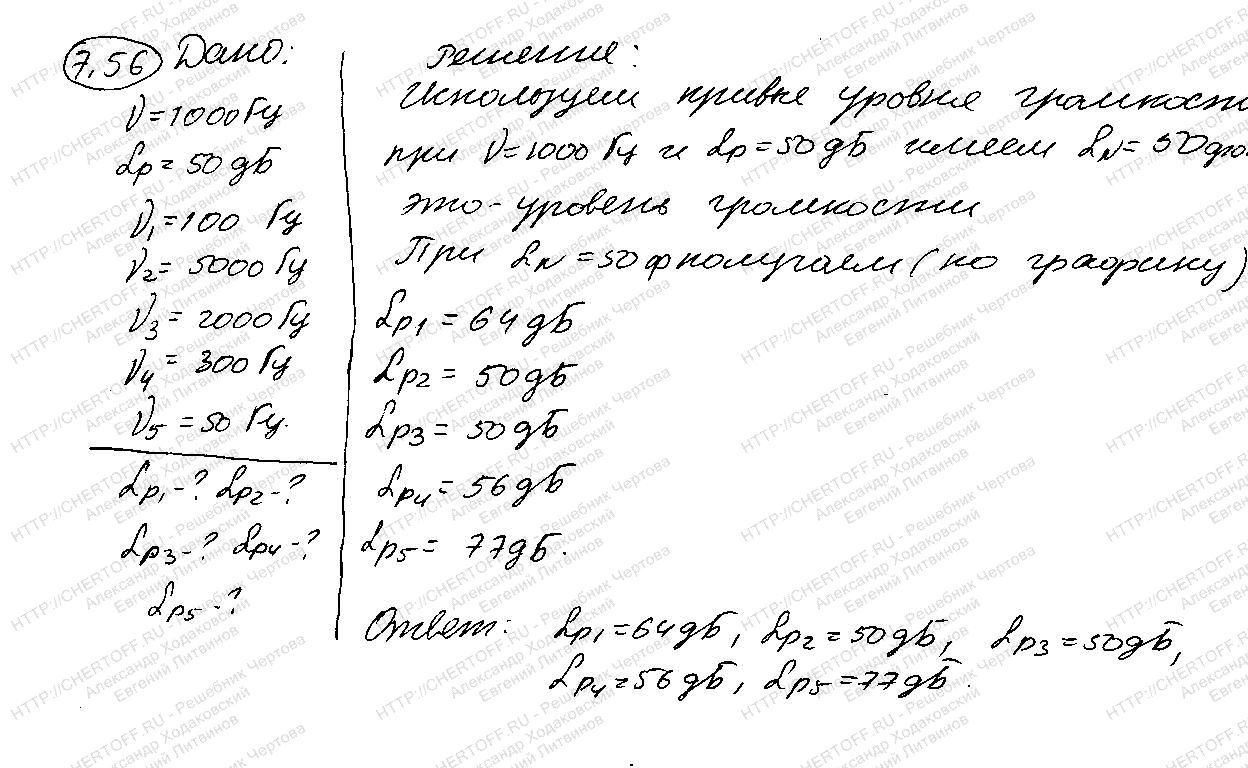 7.56 Дано:
ν=1000 Гц
Lp=50 дБ
ν1=100 Гц
ν2=5000 Гц
ν3=2000 Гц
ν4=300 Гц
ν5=50 Гц.
Lp1-? Lp2-?
Lp3-? Lp4-?
Lp5-?
Решение:
Используем кривые уровня громкости
при ν=1000 Гц и Lp=50 дБ имеем LN=50 фон
это-уровень громкости
При LN=50 ф получаем (по графику)
Lp1=64 дБ
Lp2=50 дБ
Lp3=50 дБ
Lp4=56 дБ
Lp5=77 дБ.
Ответ: Lp1=64 дБ, Lp2=50 дБ, Lp3=50 дБ,
Lp4=56 дБ, Lp5=77 дБ.
HTTP://CHERTOFF.RU - Решебник Чертова
Александр Ходаковский
Евгений Литвинов